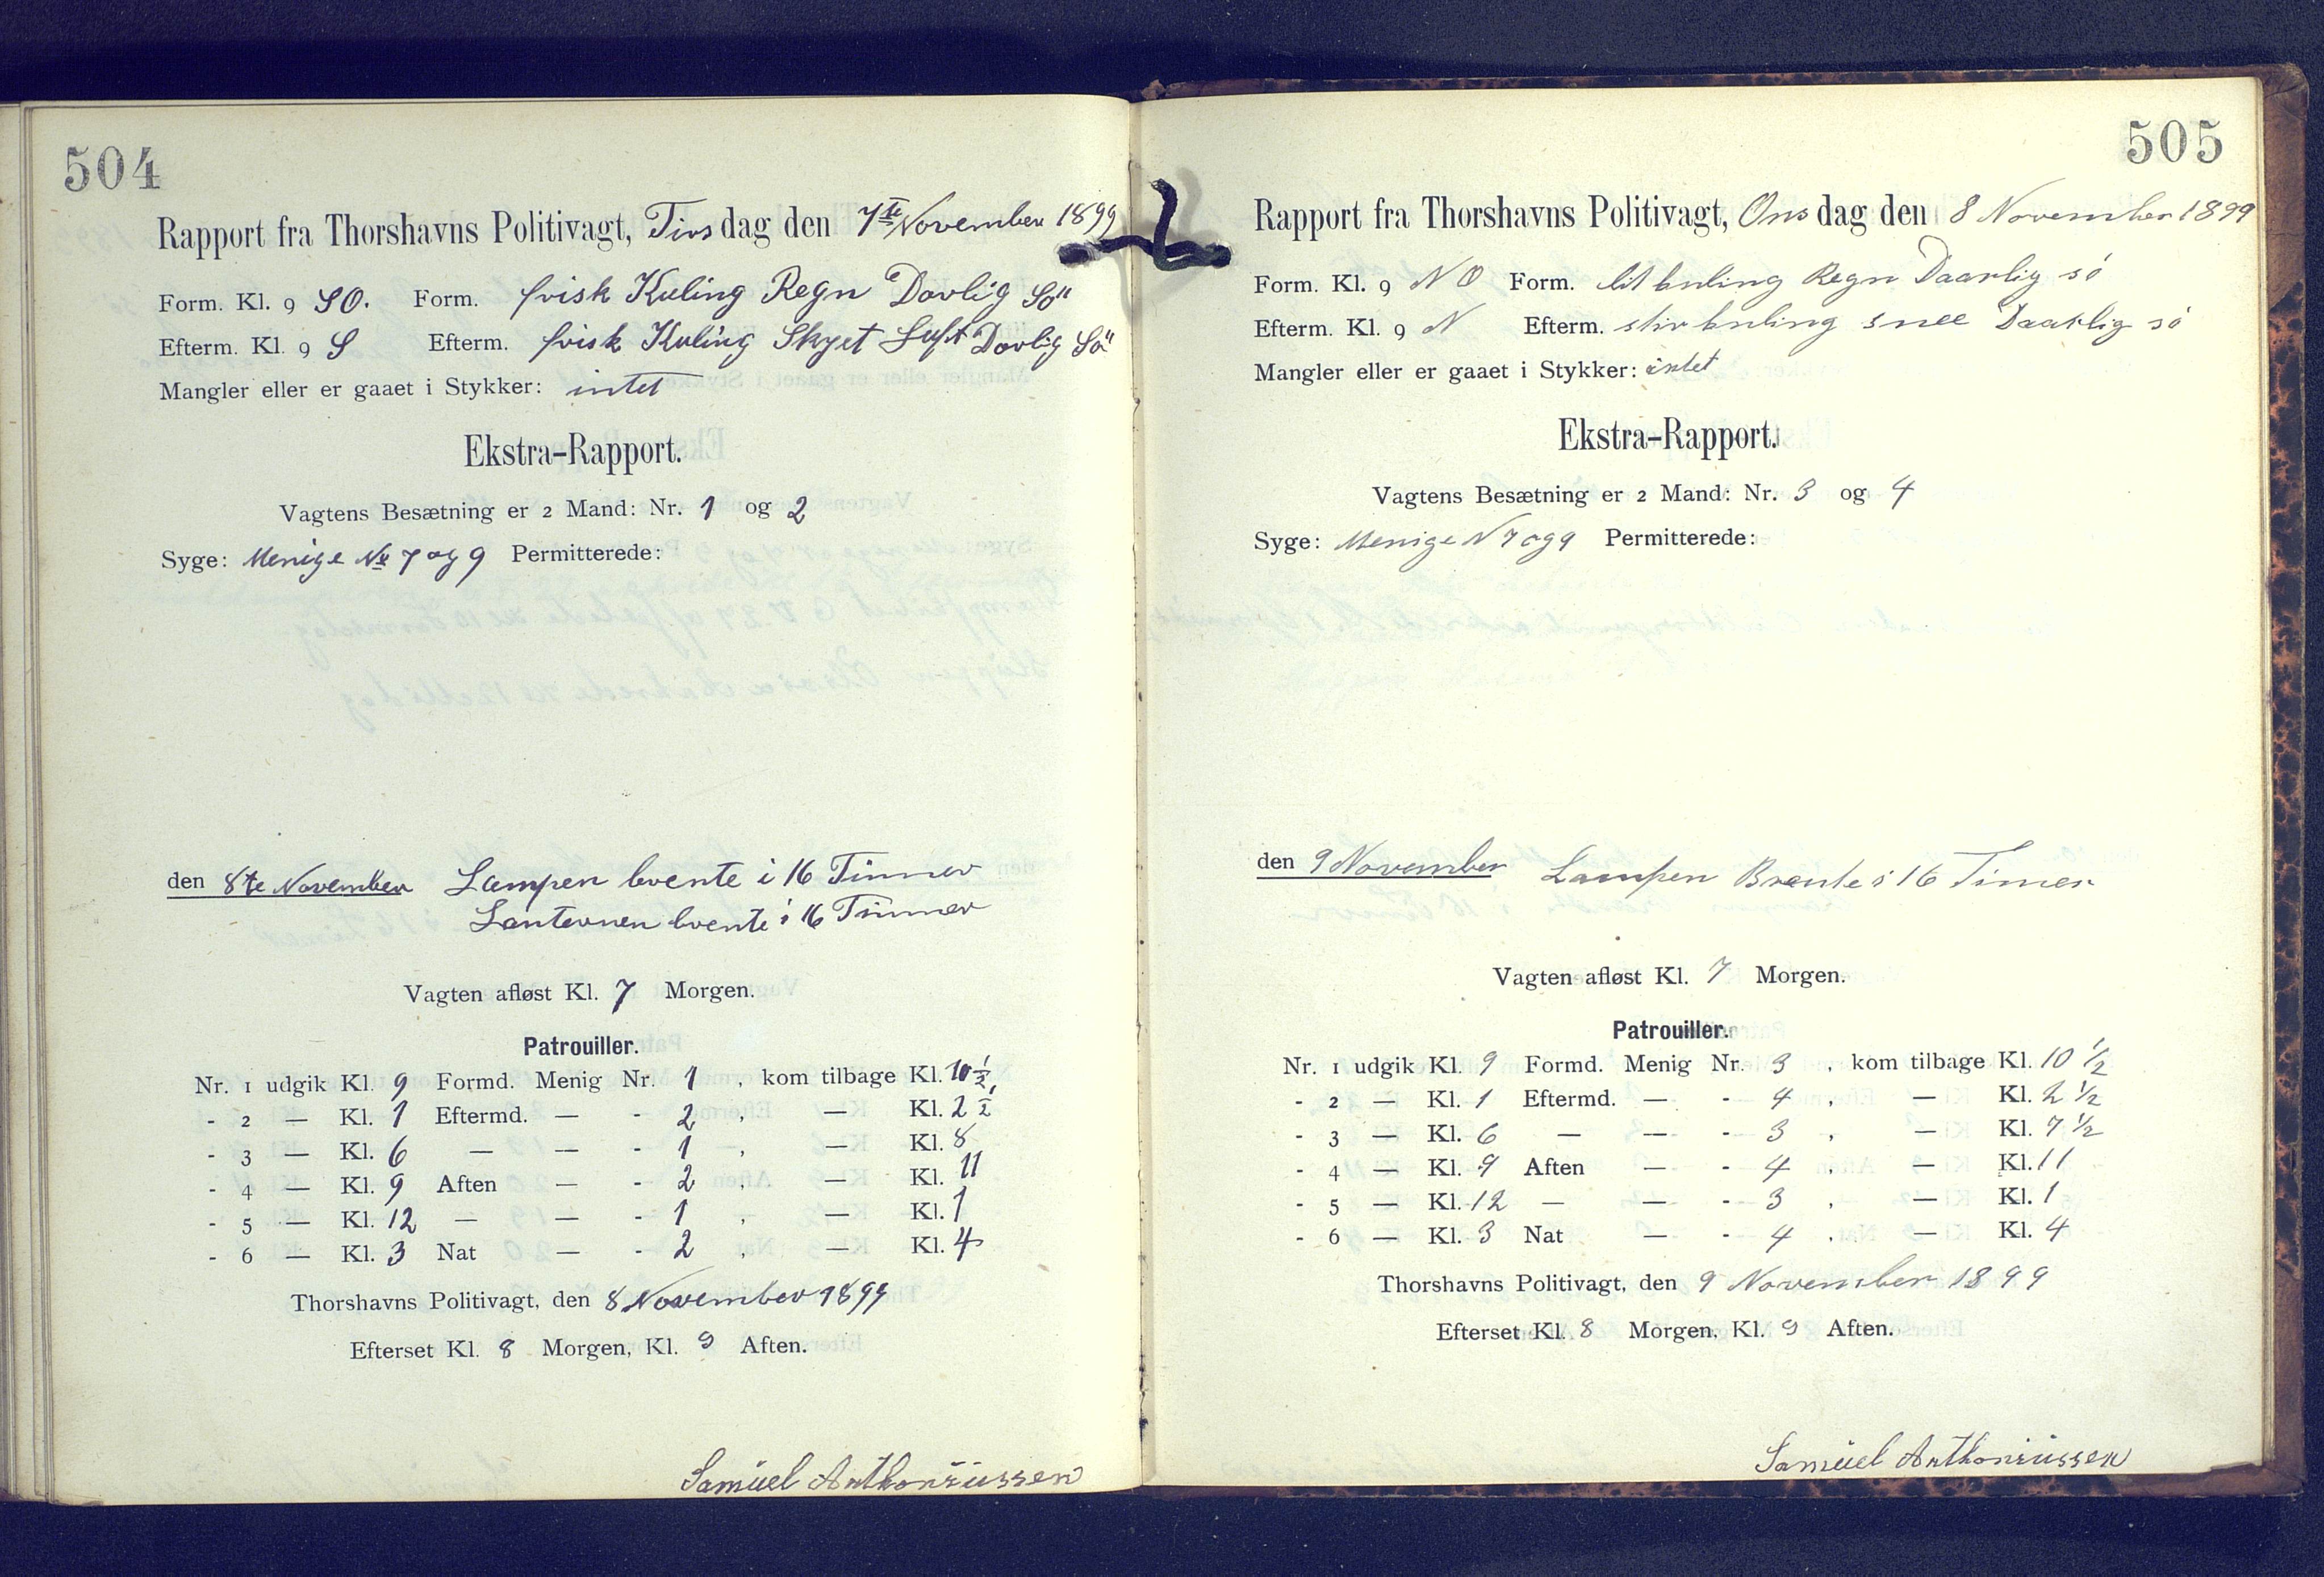 504
Rapport fra Thorshavns Politivagt, Tirsdag den 7de November 1899
Form. Kl. 9 SO. Form. frisk Kuling Regn Dovlig Sö
Efterm. Kl. 9 S Efterm. frisk Kuling Skyet Luft Dovlig Sö
Mangler eller er gaaet i Stykker: intet
Ekstra-Rapport.
Vagtens Besætning er 2 Mand: Nr. 1 og 2
Syge: Menige No 7 og 9 Permitterede:
den 8te November Lampen brente i 16 Timmer
Lanternen brente i 16 Timmer
Vagten afløst Kl. 7 Morgen.
Patrouiller.
Nr. 1 udgik Kl. 9 Formd. Menig Nr. 1 , kom tilbage Kl. 10 1/2
- 2 — Kl. 1 Eftermd. — - 2 , — Kl. 2 1/2
- 3 — Kl. 6 — — - 1 , — Kl. 8
- 4 — Kl. 9 Aften — - 2 , — Kl. 11
- 5 — Kl. 12 — — - 1 , — Kl. 1
- 6 — Kl. 3 Nat — - 2 , — Kl. 4
Thorshavns Politivagt, den 8 November 1899
Efterset Kl. 8 Morgen, Kl. 9 Aften.
Samüel Anthoniüssen
505
Rapport fra Thorshavns Politivagt, Onsdag den 8 November 1899
Form. Kl. 9 NO Form. lit kuling Regn Daarlig sö
Efterm. Kl. 9 N Efterm. stiv kuling snee Daarlig sö
Mangler eller er gaaet i Stykker: intet
Ekstra-Rapport.
Vagtens Besætning er 2 Mand: Nr. 3 og 4
Syge: Menige N 7 og 9 Permitterede:
den 9 November Lampen Brente i 16 Timer
Vagten afløst Kl. 7 Morgen.
Patrouiller.
Nr. 1 udgik Kl. 9 Formd. Menig Nr. 3 , kom tilbage Kl. 10 1/2
- 2 — Kl. 1 Eftermd. — - 4 , — Kl. 2 1/2
- 3 — Kl. 6 — — - 3 , — Kl. 7 1/2
- 4 — Kl. 9 Aften — - 4 , — Kl. 11
- 5 — Kl. 12 — — - 3 , — Kl. 1
- 6 — Kl. 3 Nat — - 4 , — Kl. 4
Thorshavns Politivagt, den 9 November 1899
Efterset Kl. 8 Morgen, Kl. 9 Aften.
Samüel Anthoniüssen